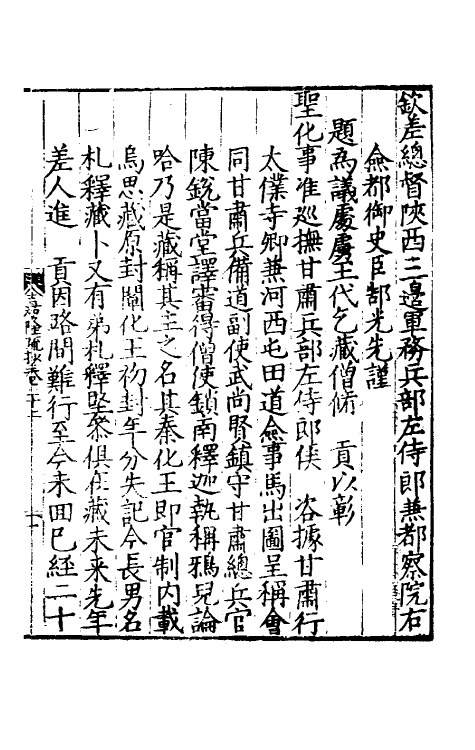 欽差總督陝西三邊軍務兵部左侍郎兼都察院右
僉都御史臣郜光先謹
題爲議處虜王代乞藏僧脩 貢以彰
聖化事准巡撫甘肅兵部左侍郎侯 咨據甘肅行
太僕寺卿兼河西屯田道僉事馬出圖呈稱會
同甘肅兵備道副使武尚賢鎮守甘肅總兵官
陳銳當堂譯審得僧使鎖南釋迦執稱鴉兒論
哈乃是藏稱其主之名其秦化王即官制內載
烏思藏原封闡化王初封年分失記今長男名
札釋藏卜又有弟札釋堅參俱在藏未來先年
差人進 貢因路間難行至今未回已經二十